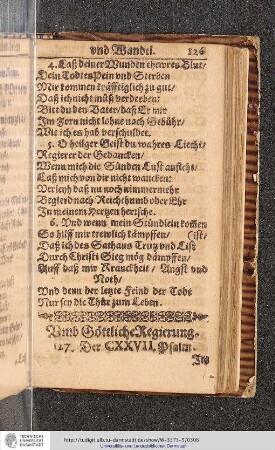 vnd Wandel. 126
4. Laß deiner Wunden thewres Blut/
Dein Todtes Pein vnd Sterben
Mir kommen kräfftiglich zu gut/
Daß ich nicht müß verderben:
Bitt du den Vater/ daß Er mir
Im Zorn nicht lohne nach Gebühr/
Wie ich es hab verschuldet.
5. O heilger Geist du wahres Liecht/
Regierer der Gedancken/
Wenn mich die Sünden Lust anficht/
Laß mich von dir nicht wancken:
Verleyh daß nu noch nimmermehr
Begierd nach Reichthumb oder Ehr
In meinem Hertzen herrsche.
6. Vnd wenn mein Stündlein kommen
So hilff mir trewlich kämpffen/ (ist/
Daß ich des Sathans Trutz vnd List
Durch Christi Sieg mög dämpffen/
Auff daß mir Kranckheit/ Angst vnd
Noth/
Vnd denn der letzte Feind der Todt
Nur sey die Thür zum Leben.
Vmb Göttliche Regierung.
127. Der CXXVII. Psalm.